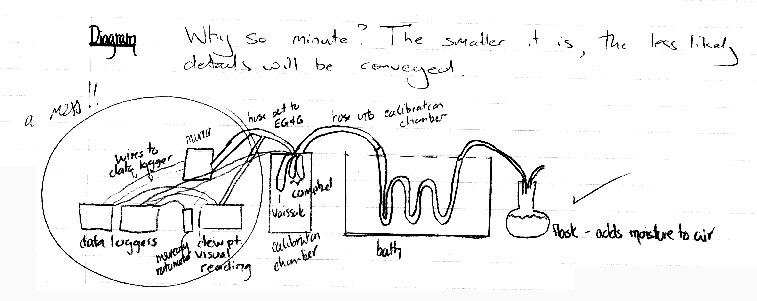 Diagram
Why so minute? The smaller it is, the less likely
details will be conveyed.
a mess!!
hose out to
EG&G
hose into calibration
chamber
mirror
wires to
data logger
vaisala
data loggers
dew pt.
visual
reading
calibration
chamber
bath
flask - adds moisture to air